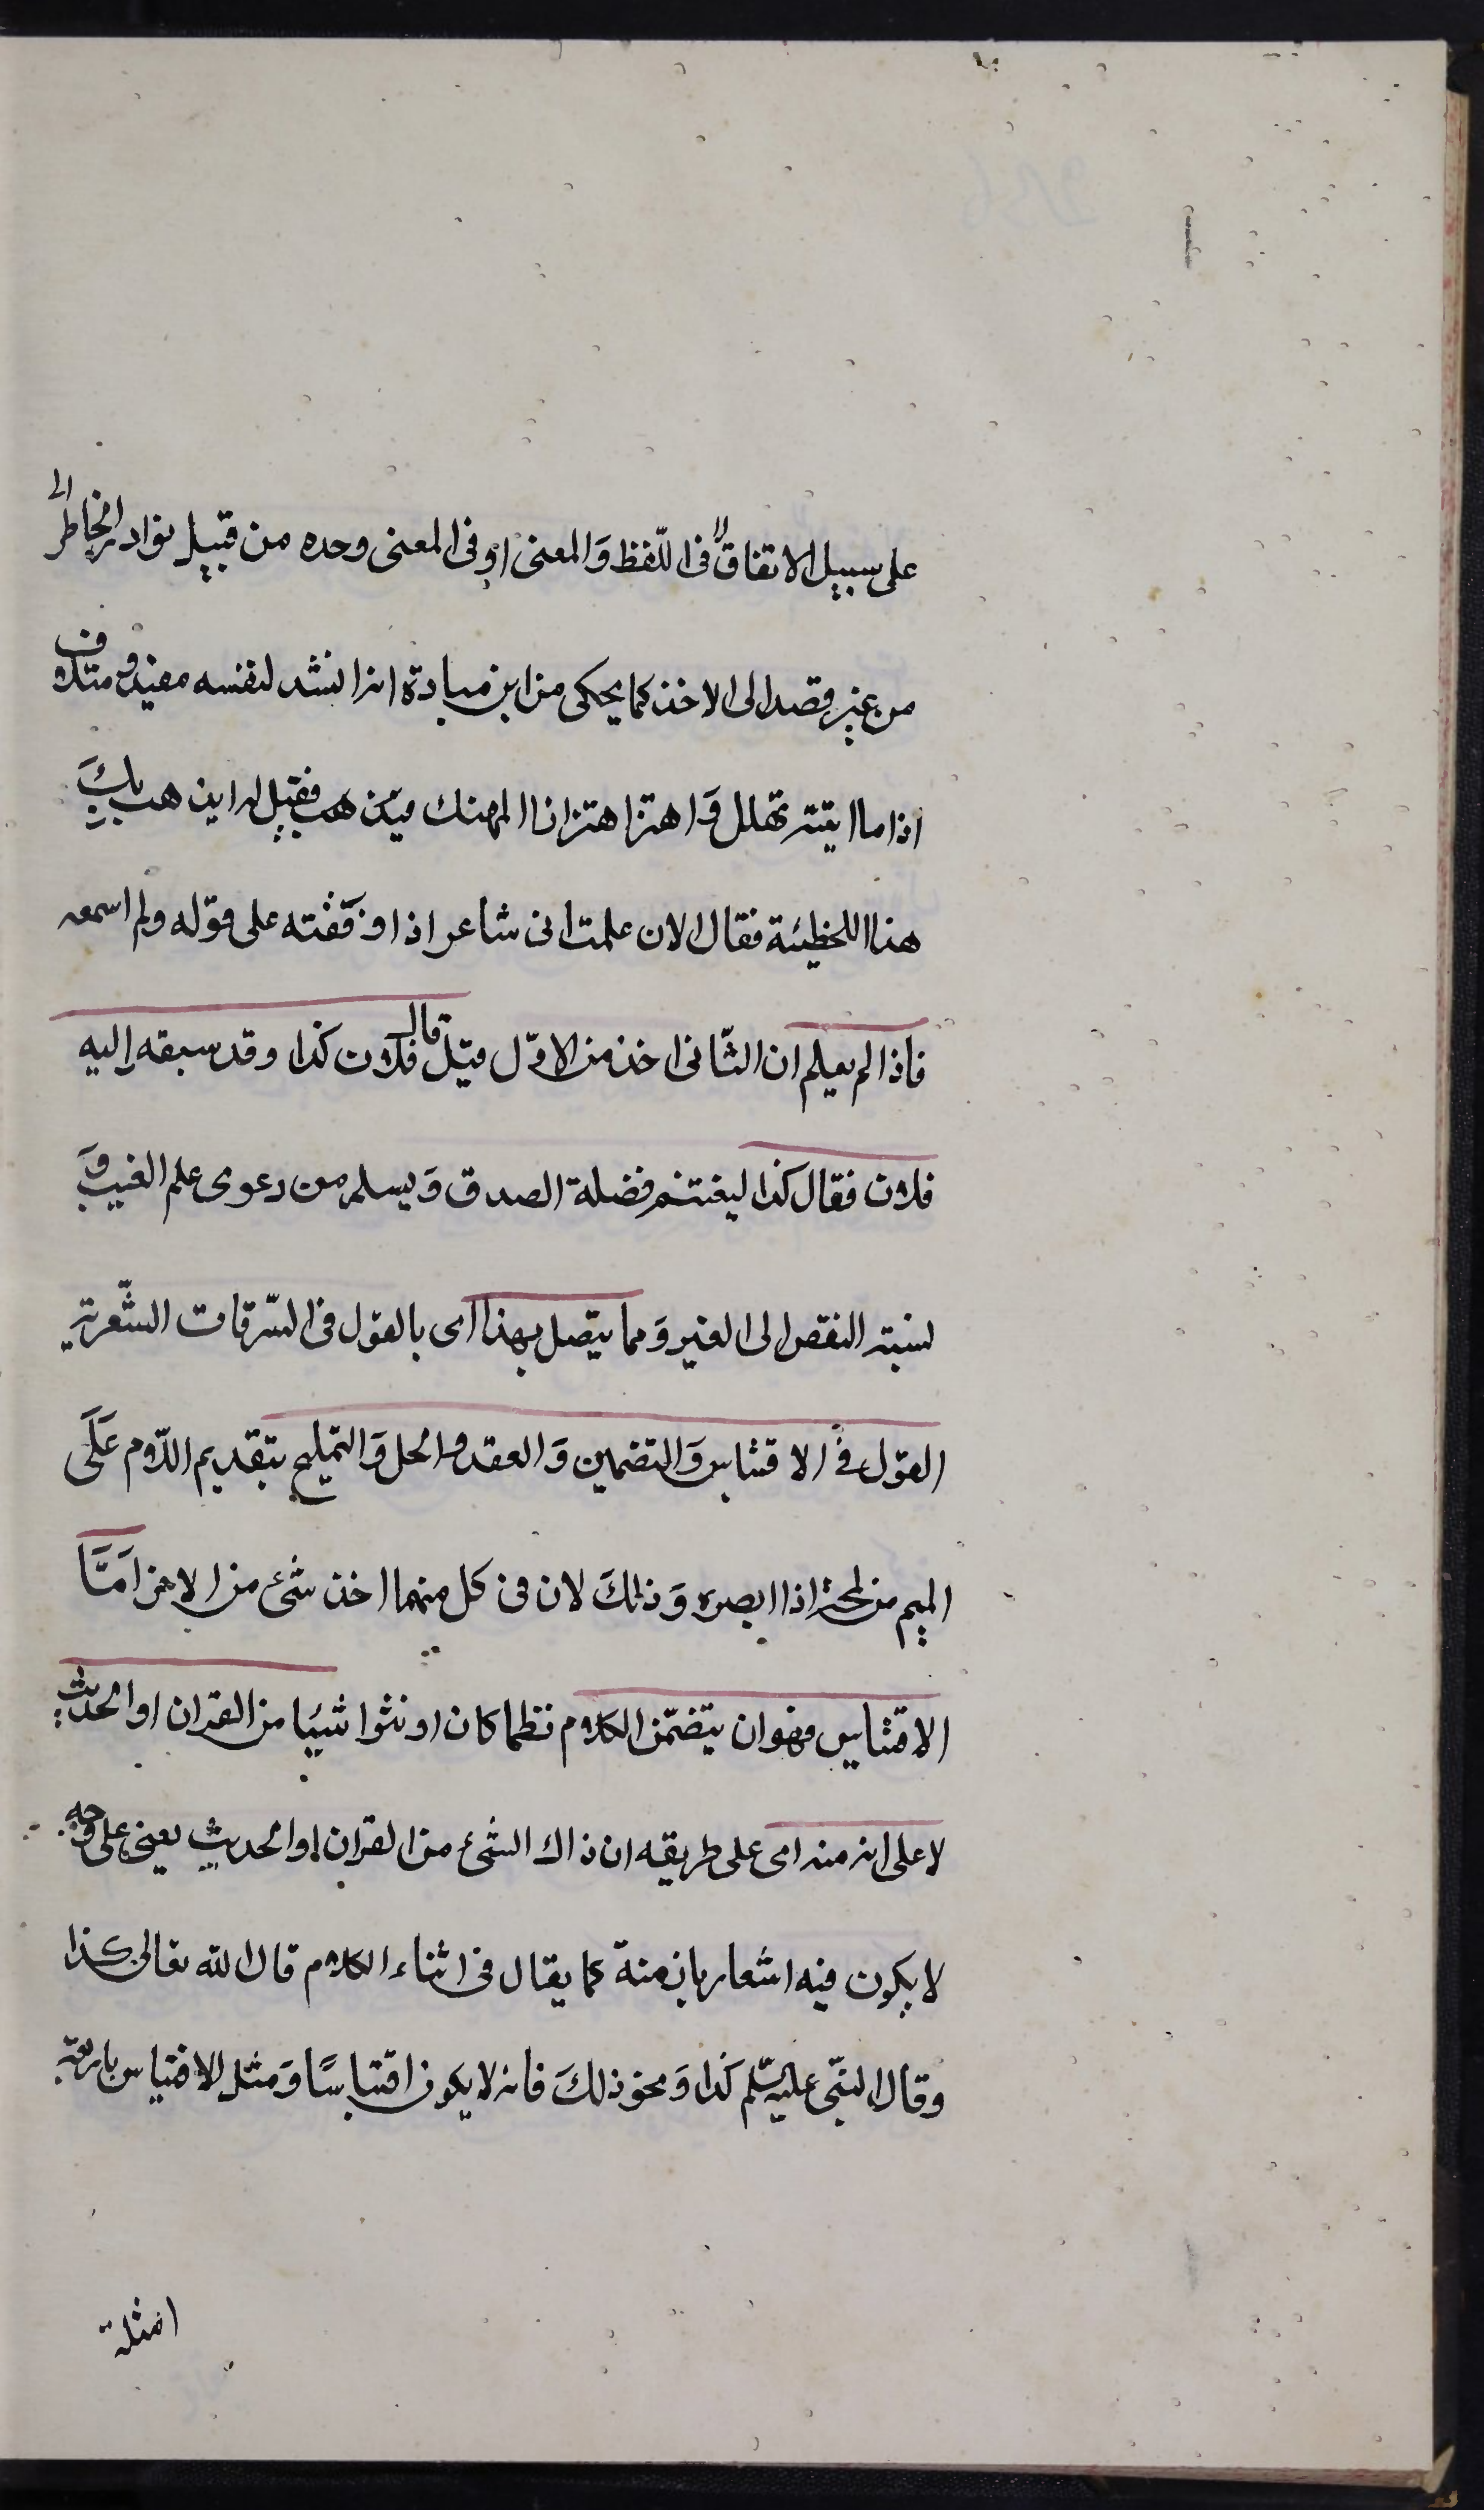 على سبيل الاتفاق في اللّفظ وَالمعنى او في المعنى وحده من قبيل توارد الخاطر اى
من غير قصد الى الاخذ كما يحكى من ابن ميادة انه انشد لنفسه مفيد ومتلاف
اذا ما اتيته تهلل وَاهتز اهتزاز المهند فقيل له اين يذهب بكَ
هذا اللحطيئة فقال الان علمت انى شاعر اذا وَفقته على قوله ولم اسمعه
فاذا لم يعلم ان الثّانى اخذ من الاوّل قيل قال فلان كذا وقد سبقه اليه
فلان فقال كذا ليغتنم فضلة الصدق وَيسلم من دعوى علم الغيب وَ
نسبته النقص الى الغير وَمما يتصل بهذا اى بالقول في السّرقات الشّعرية
القول في الاقتباس وَالتضمين وَالعقد والحل وَالتمليح بتقديم اللّام عَلَى
الميم من لمحه اذا ابصره وَذلكَ لان في كل منهما اخذ شئ من الاخر اَمَّا
الاقتباس فهو ان يتضمّن الكلام نظما كان او نثرا شيئا من القران او الحديث
لا على انه منه اى على طريقه ان ذاك الشئ من القران او الحديث يعنى على وجه
لا يكون فيه اشعار بانه منة كما يقال في اثناء الكلام قال الله تعالى كذا
وقال النبّى عليه سّلم كذا وَنحو ذلكَ فانه لا يكون اقتباسًا وَمثل الاقتباس باربعة
امثلة